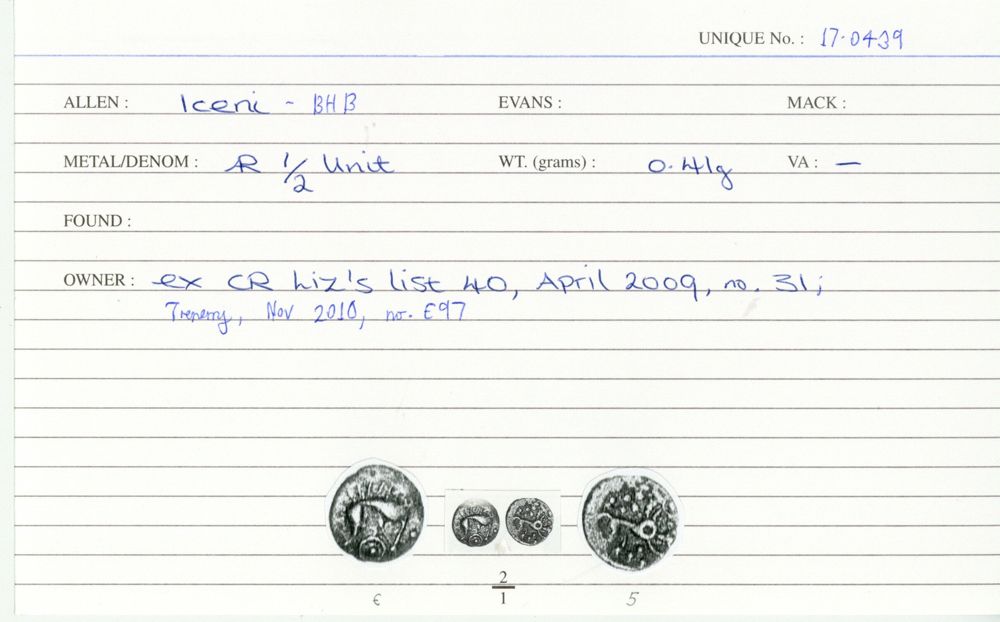 UNIQUE No. : 17.0439
ALLEN : Iceni - BHB EVANS : MACK :
METAL/DENOM : AR 1/2 Unit WT. (grams) : 0.41g VA : —
FOUND :
OWNER : ex CR Liz's list 40, April 2009, no. 31;
Trenerry, Nov 2010, no. E97
2
1
€ 5